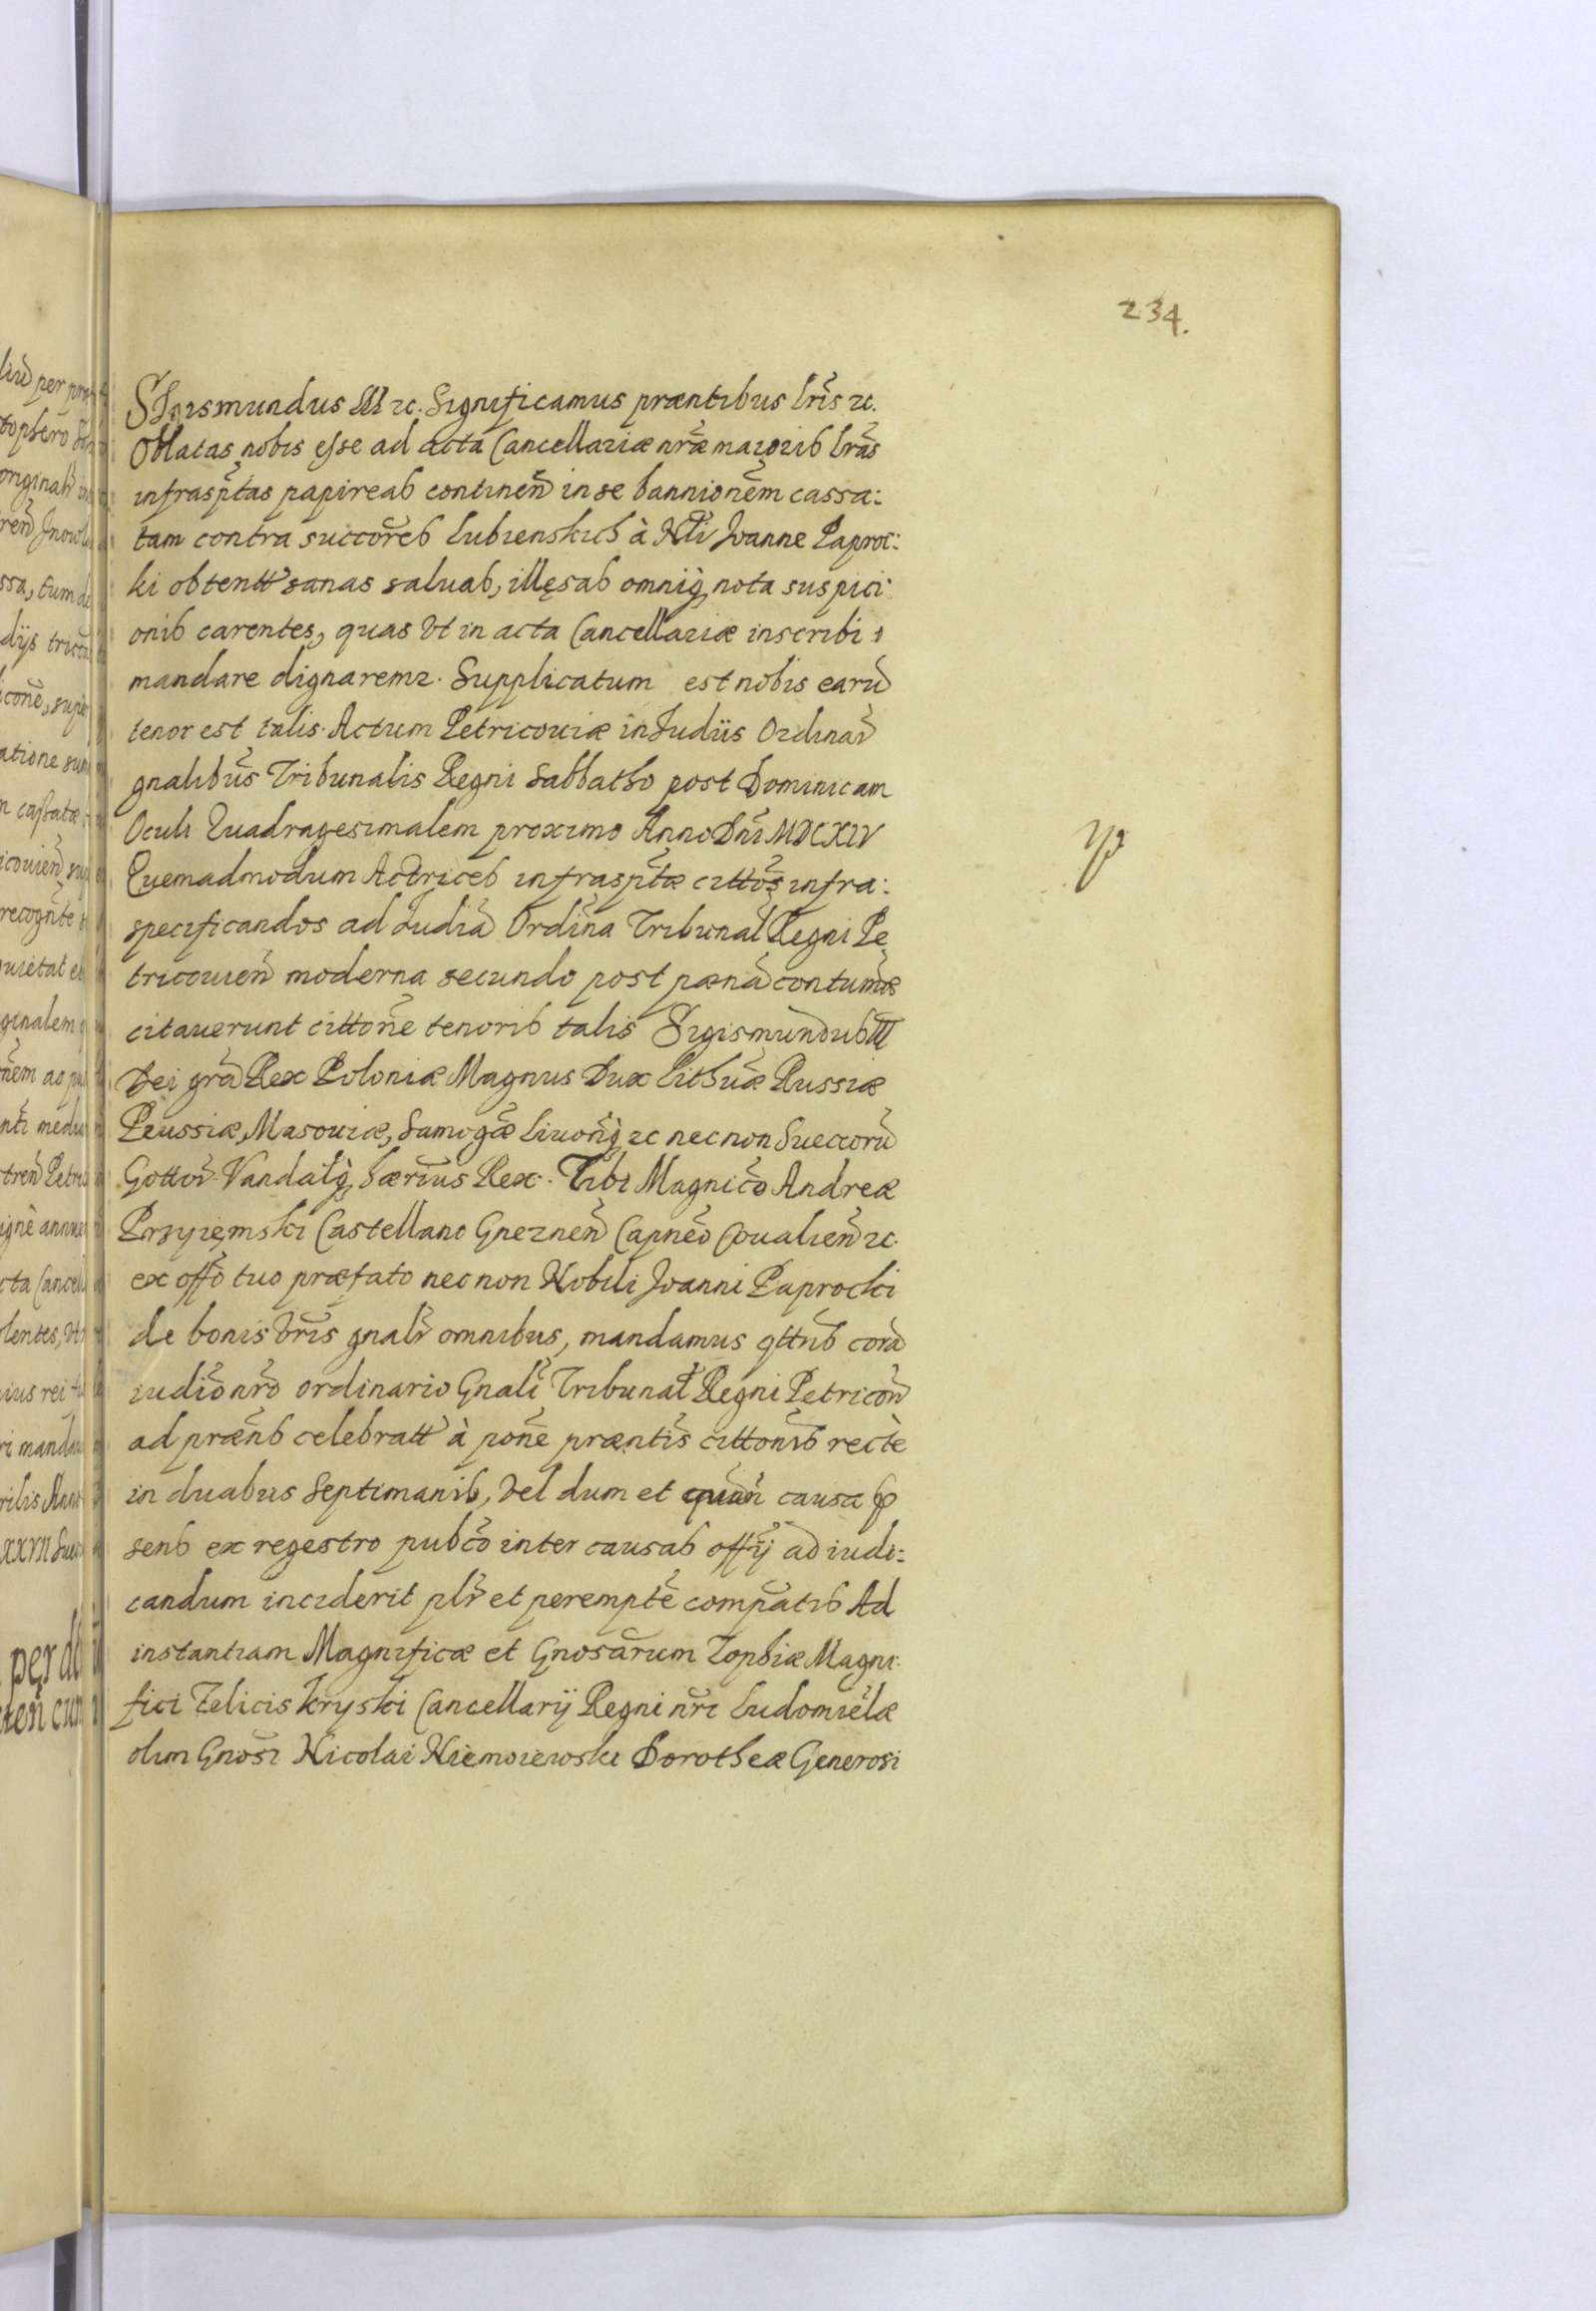 234.
SIgismundus III ꝛc. Significamus præntibus lr̃is ꝛc.
Oblatas nobis esse ad acta Cancellariæ nr̃æ maioris lr̃as
infrasp̃tas papireas continen̄ in se bannionẽm cassa:
tam contra succōres Lubienskich à Nĩi Joanne Paproc:
ki obtentt sanas saluas, illęsas omniq̃ nota suspici:
onis carentes, quas vt in acta Cancellariæ inscribi
mandare dignaremr. Supplicatum est nobis earū
tenor est talis. Actum Petricouiæ in Iudiis Ordinar̃
gnalibus̃ Tribunalis Regni Sabbatho post Dominicam
Oculi Quadragesimalem proximo Anno Dn̄i MDCXIV
Quemadmodum Actrices infrasp̃tæ cittos̃ infra:
specificandos ad Iudia̅ Ordina̅ Tribunal̃ Regni Pe
tricouien̄ moderna secundo post pæna̅ contumæ̅
citauerunt citton̄e tenoris talis Sigismundus III
Dei gr̃a Rex Poloniæ Magnus Dux Lithuæ̃ Russiæ
Prussiæ, Masouiæ, Samogæ̃ Liuon̄q̃ ꝛc necnon Suecorū
Gottor̃ Vandal̃q̃ hærius̃ Rex. Tibi Magnico̅ Andreæ
Przyięmski Castellano Gneznen̄ Capneo̅ Coualien̄ ꝛc.
ex offo̅ tuo præfato necnon Nobili Joanni Paprocki
de bonis vr̃is gnalr̃ omnibus, mandamus qttus̃ cora̅
iudio̅ nr̃o ordinario Gnali̅ Tribunal̃ Regni Petricon̄
ad præn̄s celebratt à pon̄e præntis̃ citton̄is rectè
in duabus Septimanis, vel dum et quan̄ causa p̃
sens ex regestro pubco̅ inter causas offij̃ ad iudi:
candum inciderit plr̃ et perempte̅ compatis̃ Ad
instantiam Magnificæ et Gnosar̃um Zophiæ Magni:
fici Felicis Kryski Cancellarij Regni nr̃i Ludomiełæ
olim Gnosi̅ Nicolai Niemoiewski Dorotheæ Generosi